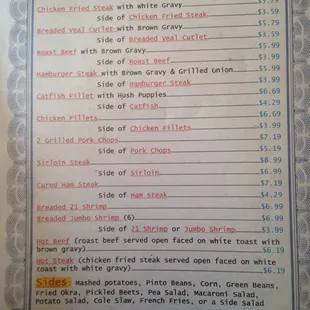 Chicken Fried Steak with White Gravy $5.79
Side of Chicken Fried Steak $3.59
Breaded Veal Cutlet with Brown Gravy $5.79
Side of Breaded Veal Cutlet $3.59
Roast Beef with Brown Gravy $5.99
Side of Roast Beef $3.99
Hamburger Steak with Brown Gravy & Grilled Onion $5.99
Side of Hamburger Steak $3.99
Catfish Fillet with Hush Puppies $6.69
Side of Catfish $4.29
Chicken Fillets $6.69
Side of Chicken Fillets $3.99
2 Grilled Pork Chops $7.19
Side of Pork Chops $5.19
Sirloin Steak $8.99
Side of Sirloin $6.99
Cured Ham Steak $7.19
Side of Ham Steak $4.29
Breaded 21 Shrimp $6.99
Breaded Jumbo Shrimp (6) $6.99
Side of 21 Shrimp or Jumbo Shrimp $3.99
Hot Beef (roast beef served open faced on white toast with
brown gravy) $6.19
Hot Steak (chicken fried steak served open faced on white
toast with white gravy) $6.19
Sides: Mashed potatoes, Pinto Beans, Corn, Green Beans,
Fried Okra, Pickled Beets, Pea Salad, Macaroni Salad,
Potato Salad, Cole Slaw, French Fries, or a Side Salad